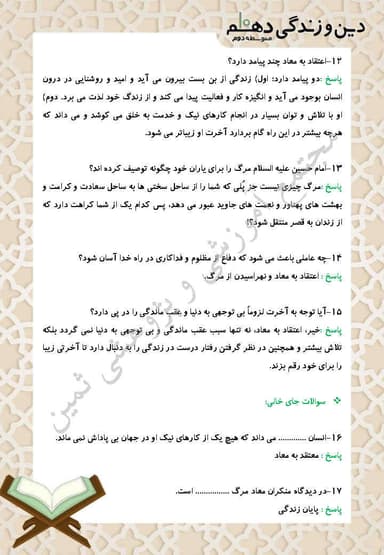 دین و زندگی دهم
متوسطه دوم
۱۲-اعتقاد به معاد چند پیامد دارد؟
پاسخ :دو پیامد دارد: اول) زندگی از بن بست بیرون می آید و امید و روشنایی در درون
انسان بوجود می آید و انگیزه کار و فعالیت پیدا می کند و از زندگ خود لذت می برد. دوم)
او با تلاش و توان بسیار در انجام کارهای نیک و خدمت به خلق می کوشد و می داند که
هرچه بیشتر در این راه گام بردارد آخرت او زیباتر می شود.
۱۳-امام حسین علیه السلام مرگ را برای یاران خود چگونه توصیف کرده اند؟
پاسخ :مرگ چیزی نیست جز پُلی که شما را از ساحل سختی ها به ساحل سعادت و کرامت و
بهشت های پهناور و نعمت های جاوید عبور می دهد، پس کدام یک از شما کراهت دارد که
از زندان به قصر منتقل شود؟)
۱۴-چه عاملی باعث می شود که دفاع از مظلوم و فداکاری در راه خدا آسان شود؟
پاسخ : اعتقاد به معاد و نهراسیدن از مرگ.
۱۵-آیا توجه به آخرت لزوماً بی توجهی به دنیا و عقب ماندگی را در پی دارد؟
پاسخ :خیر، اعتقاد به معاد، نه تنها سبب عقب ماندگی و بی توجهی به دنیا نمی گردد بلکه
تلاش بیشتر و همچنین در نظر گرفتن رفتار درست در زندگی را به دنبال دارد تا آخرتی زیبا
را برای خود رقم بزند.
❖ سوالات جای خالی:
۱۶-انسان ............. می داند که هیچ یک از کارهای نیک او در جهان بی پاداش نمی ماند.
پاسخ : معتقد به معاد
۱۷-در دیدگاه منکران معاد مرگ ................ است.
پاسخ : پایان زندگی
مجتمع آموزشی و پژوهشی ثمین